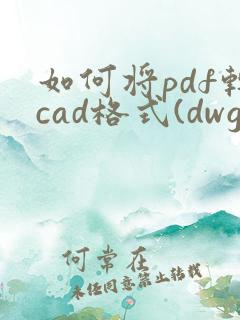 如何将pdf转
cad格式(dwg
何常在
未经同意禁止转载